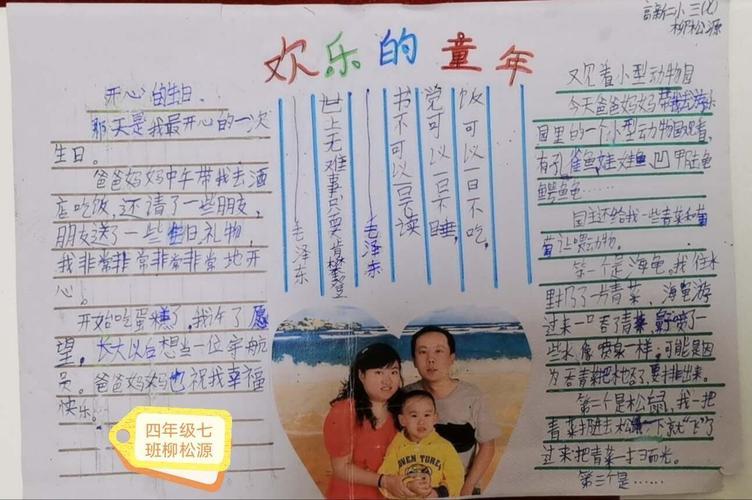 高新仁小三(7)
柳松源
欢乐的童年
开心的生日。
那天是我最开心的一次
生日。
爸爸妈妈中午带我去酒
店吃饭,还请了一些朋友,
朋友送了一些生日礼物,
我非常非常非常非常地开
心。
开始吃蛋糕了,我许了愿
望,长大以后想当一位宇航
员。爸爸妈妈也祝我幸福
快乐。
饭可以一日不吃,
觉可以一日不睡,
书不可以一日不读
——毛泽东
世上无难事只要肯攀登
——毛泽东
观看小型动物园
今天爸爸妈妈带我去游水
园里的一个小型动物园观看
有孔雀鱼,娃娃鱼,凹甲陆龟
鳄鱼龟……
园主还给我一些青菜和
让喂动物。
第一个是海龟。我往水
里扔了一片青菜,海龟游
过来一口吞了青菜,喷了一
些水像喷泉一样,可能是因
为吞青菜把水吃了,要排出来。
第二个是松鼠,我一把
青菜扔进去松鼠一下就"飞"了
过来把青菜一扫而光。
第三个是……
四年级七
班柳松源